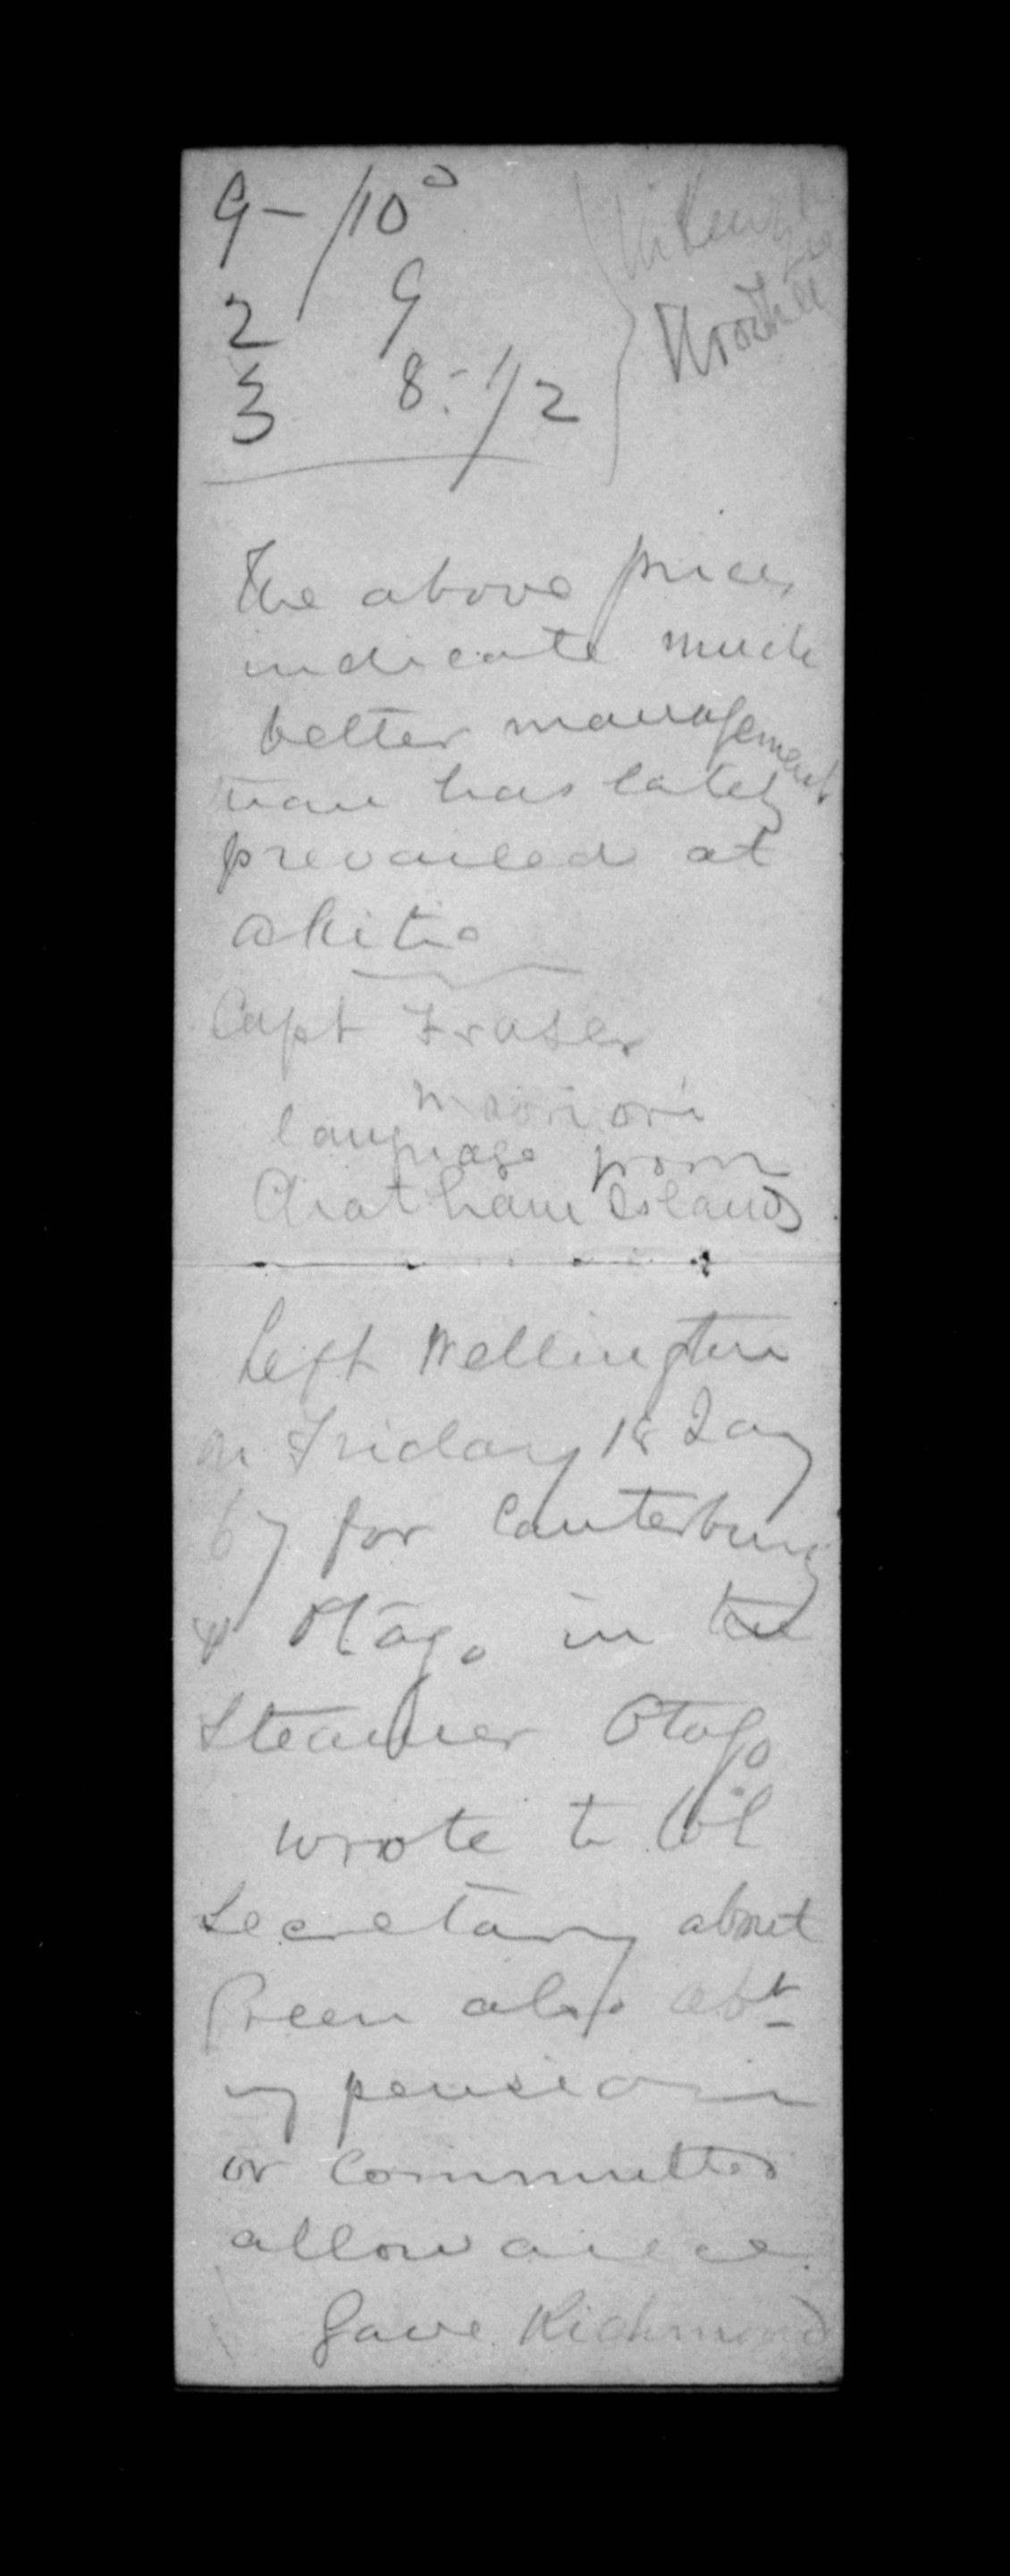 9 - /10 d
2 9
3 8. 1/2
The above prices
indicate much
better management
than has lately
prevailed at
Akitio
Capt Fraser
Mooriori
language from
Chatham Islands
Left Wellington
on Friday 18 Jay
67 for Canterbury
& Otago in the
Steamer Otago
wrote to Col
Secretary about
Green also abt
my pension
or Committed
allowance
Gave Richmond